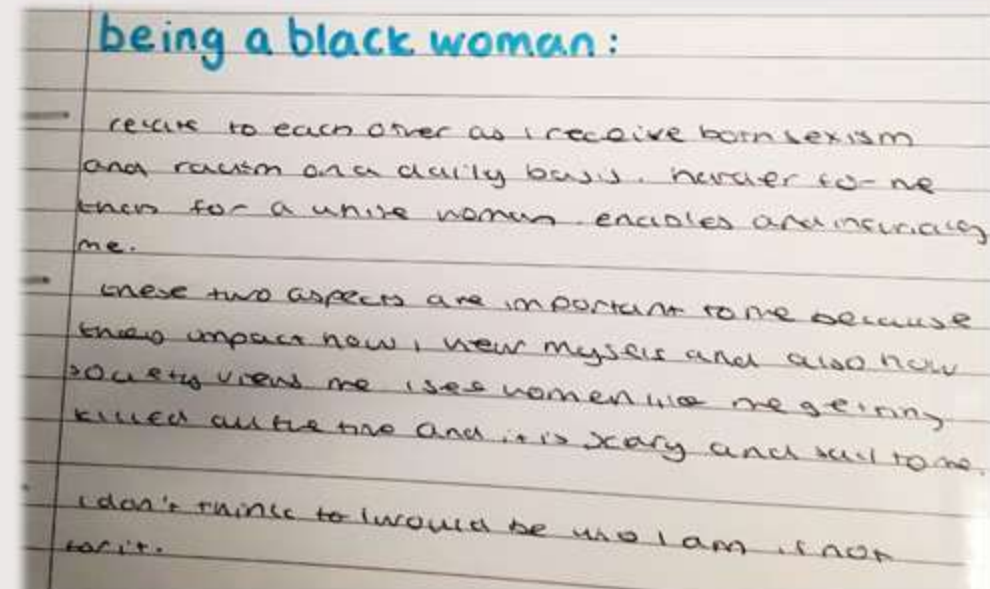 being a black woman:
relate to each other as i receive both sexism
and racism on a daily basis. harder for me
then for a white woman. enables and
me.
these two aspects are important to me because
they impact how i view myself and also how
society views me i see women like me getting
killed all the time and it is scary and sad to me.
i don't think to i would be who i am if not
for it.